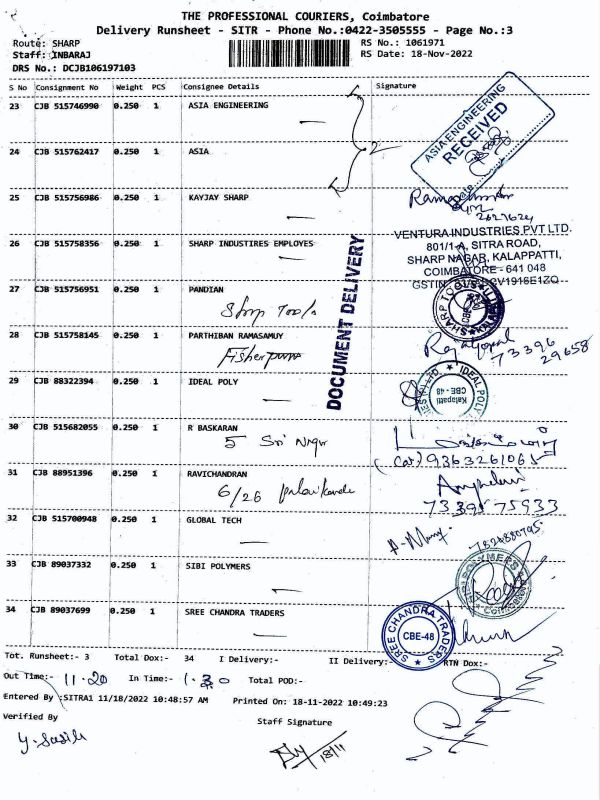 THE PROFESSIONAL COURIERS, Coimbatore
Delivery Runsheet - SITR - Phone No.:0422-3505555 - Page No.:3
Route: SHARP
Staff: INBARAJ
DRS No.: DCJB106197103
RS No.: 1061971
RS Date: 18-Nov-2022
S No Consignment No Weight PCS Consignee Details Signature
23 CJB 515746990 0.250 1 ASIA ENGINEERING
ASIA ENGINEERING
RECEIVED
24 CJB 515762417 0.250 1 ASIA
2
25 CJB 515756986 0.250 1 KAYJAY SHARP
26 CJB 515758356 0.250 1 SHARP INDUSTIRES EMPLOYES
VENTURA INDUSTRIES PVT LTD.
801/1-A, SITRA ROAD,
SHARP NAGAR, KALAPPATTI,
COIMBATORE - 641 048
27 CJB 515756951 0.250 1 PANDIAN
Sharp Tools
SHARP TOOLS
DOCUMENT DELIVERY
28 CJB 515758145 0.250 1 PARTHIBAN RAMASAMUY
Fisher pump
Rajagopal
73396
29658
29 CJB 88322394 0.250 1 IDEAL POLY
IDEAL POLY
Kalapatti
CBE - 48
30 CJB 515682055 0.250 1 R BASKARAN
5 Sri Nagar
9363261065
31 CJB 88951396 0.250 1 RAVICHANDRAN
6/26
73391 75933
32 CJB 515700948 0.250 1 GLOBAL TECH
33 CJB 89037332 0.250 1 SIBI POLYMERS
34 CJB 89037699 0.250 1 SREE CHANDRA TRADERS
SREE CHANDRA TRADERS
CBE-48
Tot. Runsheet:- 3 Total Dox:- 34 I Delivery:- II Delivery:- RTN Dox:-
Out Time:- 11.20 In Time:- 1.30 Total POD:-
Entered By :SITRA1 11/18/2022 10:48:57 AM Printed On: 18-11-2022 10:49:23
Verified By
Staff Signature
18/11